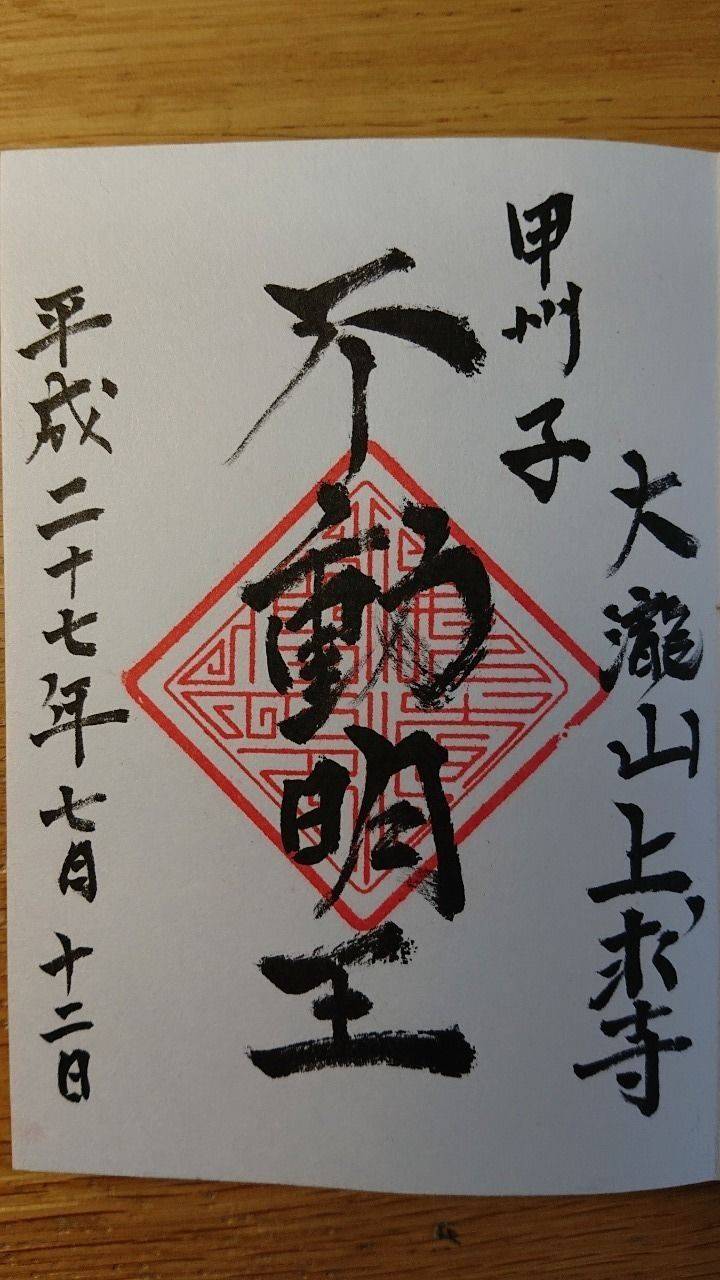 大瀧山上求寺
甲州子
不動明王
平成二十七年七月十二日